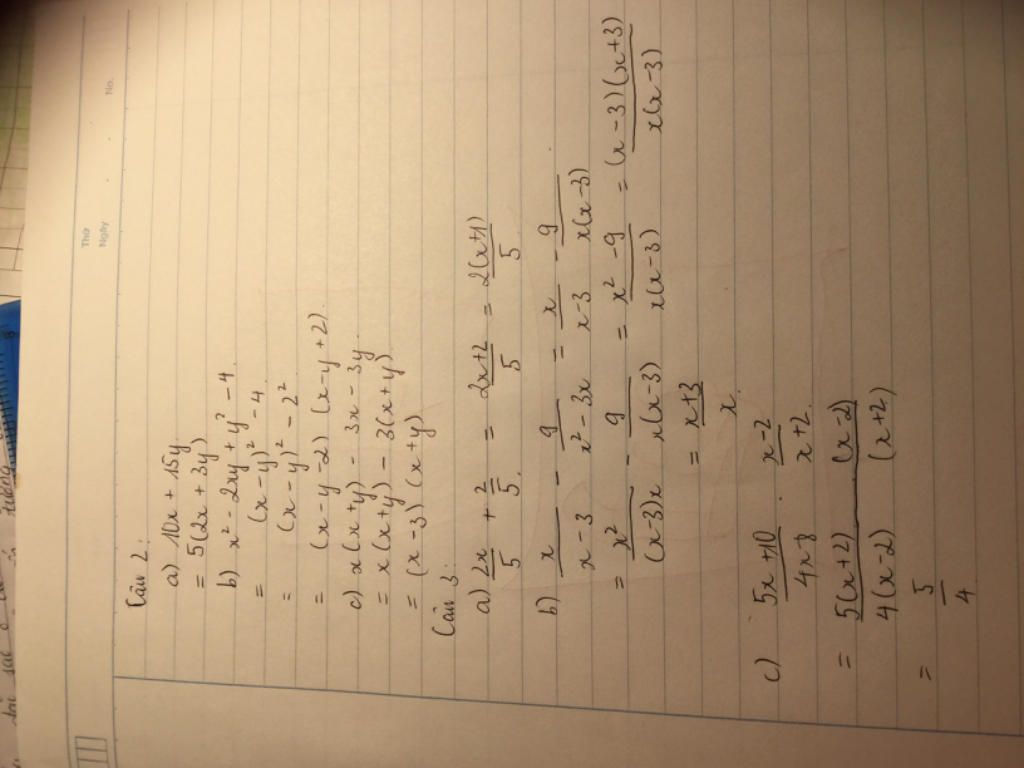 Thứ
Ngày
No.
Câu 2:
a) 10x + 15y
= 5(2x + 3y)
b) x² - 2xy + y² - 4
= (x - y)² - 4
= (x - y)² - 2²
= (x - y - 2) (x - y + 2)
c) x(x+y) - 3x - 3y
= x(x+y) - 3(x+y)
= (x - 3) (x + y)
Câu 3:
a) 2x/5 + 2/5 = 2x+2/5 = 2(x+1)/5
b) x/x-3 - 9/x²-3x = x/x-3 - 9/x(x-3)
= x²/(x-3)x - 9/x(x-3) = x²-9/x(x-3) = (x-3)(x+3)/x(x-3)
= x+3/x.
c) 5x+10/4x-8 . x-2/x+2.
= 5(x+2) (x-2)/4(x-2) (x+2)
= 5/4